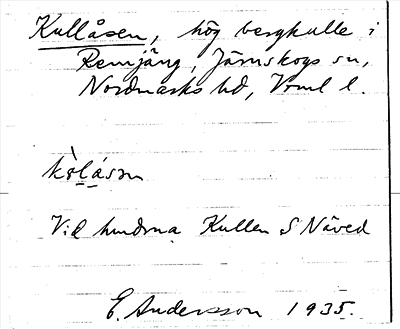 Kullåsen, hög bergkulle i
Remjäng, Järnskogs sn,
Nordmarks hd, Vrml l.
kòlåsm
Vid hmdrna Kullen S Näved
E. Andersson 1935.